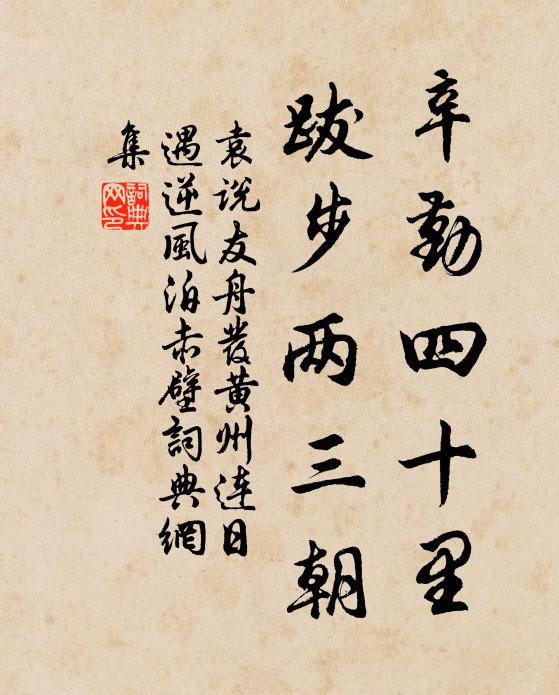 辛勤四十里
跋步两三朝
袁说友舟發黄州连日
遇逆風泊赤壁詞典網
集
詞典网印